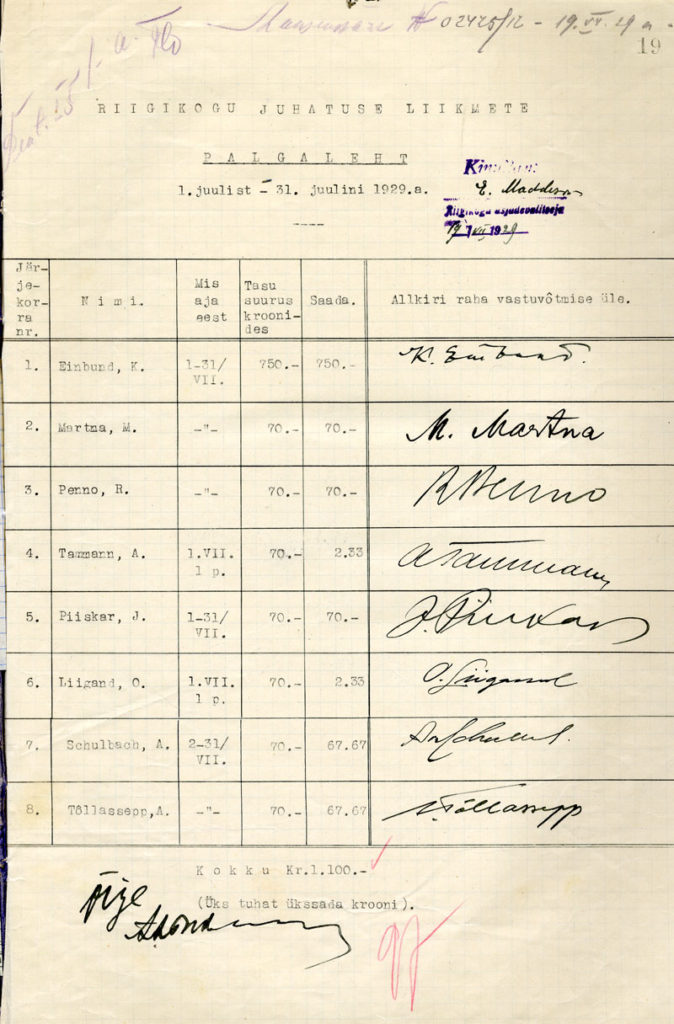 02425/12 - 19.VII.29 a.
19
RIIGIKOGU JUHATUSE LIIKMETE
PALGALEHT
1.juulist - 31. juulini 1929.a.
E. Maddison
Riigikogu asjadevalitseja
19 VII 1929
Jär-
je-
kor-
ra
nr.
Nimi.
Mis
aja
eest
Tasu
suurus
krooni-
des
Saada.
Allkiri raha vastuvõtmise üle.
1. Einbund, K. 1-31/ 750.- 750.- K. Einbund.
VII.
2. Martna, M. -"- 70.- 70.- M. Martna
3. Penno, R. -"- 70.- 70.- R Penno
4. Tammann, A. 1.VII. 70.- 2.33 A Tammann
1 p.
5. Piiskar, J. 1-31/ 70.- 70.- J. Piiskar
VII.
6. Liigand, O. 1.VII. 70.- 2.33 O. Liigand
1 p.
7. Schulbach, A. 2-31/ 70.- 67.67
VII.
8. Tõllassepp,A. -"- 70.- 67.67 A. Tõllassepp
Kokku Kr.1.100.-
(Üks tuhat ükssada krooni).
Õige